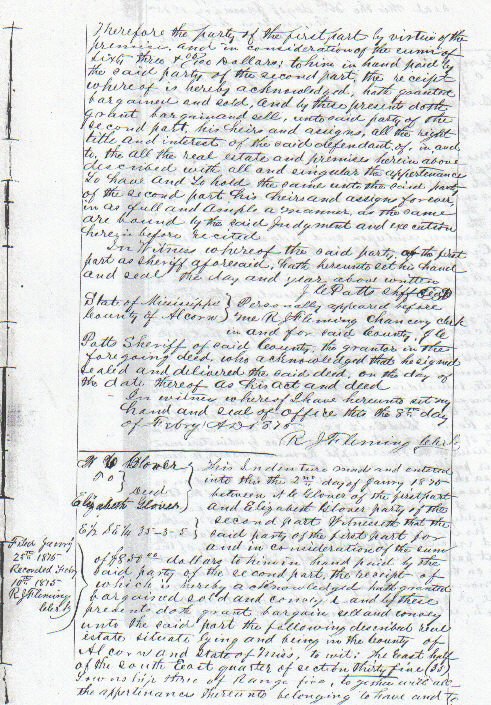 Therefore the party of the first part by virtue of the
premises, and in consideration of the sum of
Sixty three & 00/100 Dollars; to him in hand paid by
the said party of the second part, the receipt
whereof is hereby acknowledged, hath granted
bargained and sold, and by these presents doth
grant bargain and sell, unto said party of the
second part, his heirs and assigns, all the right
title and interest of the said defendant, of, in and
to, the all the real estate and premises herein above
described with all and singular the appertenance
To have and To hold the same unto the said party
of the second part his heirs and assigns forever,
in as full and ample a manner, as the same
are bound by the said Judgment and execution
herein before recited
In Witness whereof the said party, of the first
part as sheriff aforesaid, hath hereunto set his hand
and seal the day and year above written
J C Patts Shff
State of Mississippi } Personally appeared before
County of Alcorn } me R J Fleming Chancery clerk
in and for said County, J C
Potts Sheriff of said County, the grantor in the
foregoing deed, who acknowledged that he signed
sealed and delivered the said deed, on the day of
the date thereof as his act and deed
In witness whereof I have hereunto set my
hand and seal of office this the 8th day
of Febry AD 1875
R J Fleming Clerk
Glover
To } Deed
Elizabeth Glover
E½ SE¼ 35-3-5
Filed Janry
25th 1875
Recorded Feby
10th 1875
R J Fleming
Clerk
This Indenture made and entered
into this the 2nd day of Janry 1875
between Glover of the first part
and Elizabeth Glover party of the
second part Witnesseth that the
said party of the first part for
and in consideration of the sum
of $850.00 dollars to him in hand paid by the
said party of the second part, the receipt of
which is hereby acknowledged hath granted
bargained sold and conveyed and by these
presents doth grant bargain sell and convey
unto the said part the following described real
estate situate lying and being in the County of
Alcorn and State of Miss, to wit: The East half
of the South East quarter of section Thirty five (35)
Township three of Range five, together with all
the appertinances thereunto belonging to have and to